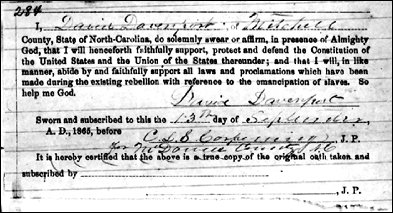 284
I, David Davenport of Mitchell
County, State of North-Carolina, do solemnly swear or affirm, in presence of Almighty
God, that I will henceforth faithfully support, protect and defend the Constitution of
the United States and the Union of the States thereunder; and that I will, in like
manner, abide by and faithfully support all laws and proclamations which have been
made during the existing rebellion with reference to the emancipation of slaves. So
help me God.
Davenport
Sworn and subscribed to this the 13th day of September
A. D., 1865, before
J. P.
for McDowell County N.C.
It is hereby certified that the above is a true copy of the original oath taken and
subscribed by
, J. P.